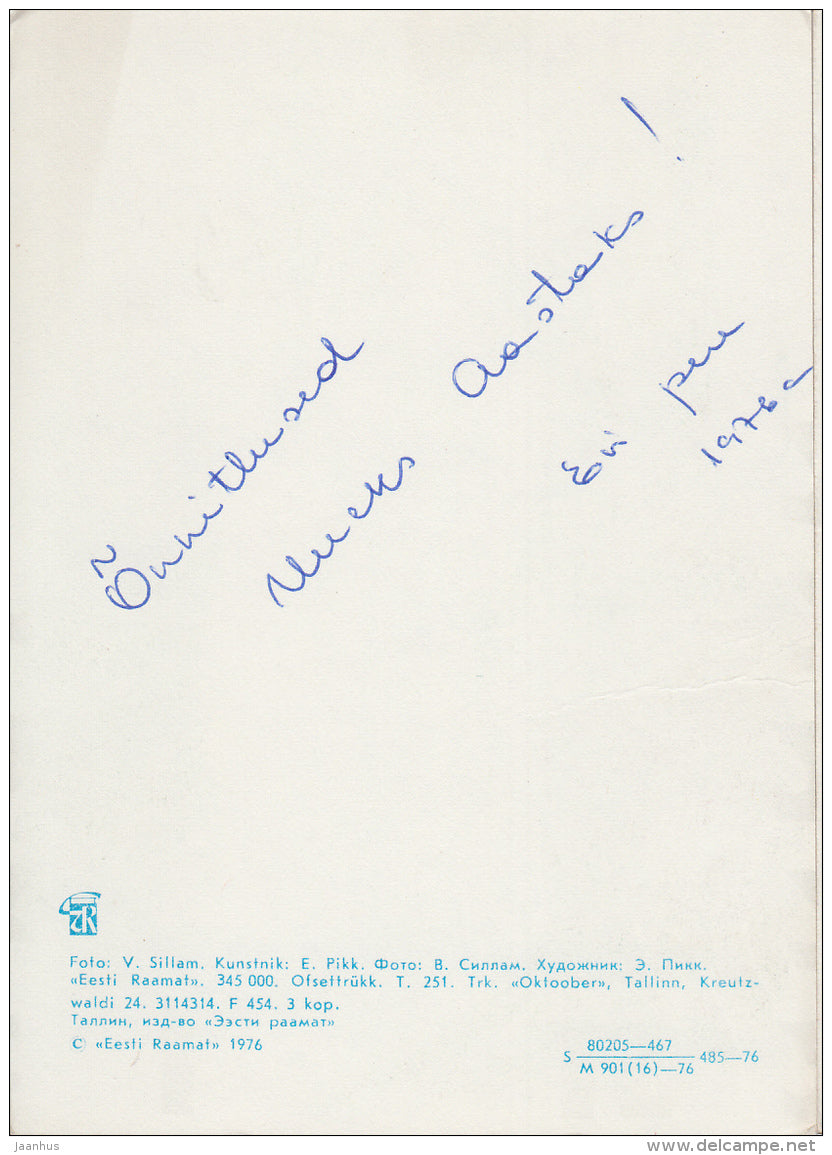 Õnnitlused
Uueks aastaks!
Evi pere
1976 a
Foto: V. Sillam. Kunstnik: E. Pikk. Фото: В. Силлам. Художник: Э. Пикк.
«Eesti Raamat». 345 000. Ofsettrükk. T. 251. Trk. «Oktoober», Tallinn, Kreutz-
waldi 24. 3114314. F 454. 3 kop.
Таллин, изд-во «Ээсти раамат»
© «Eesti Raamat» 1976
80205—467
S 485—76
M 901(16)—76
jaanhus
www.delcampe.net